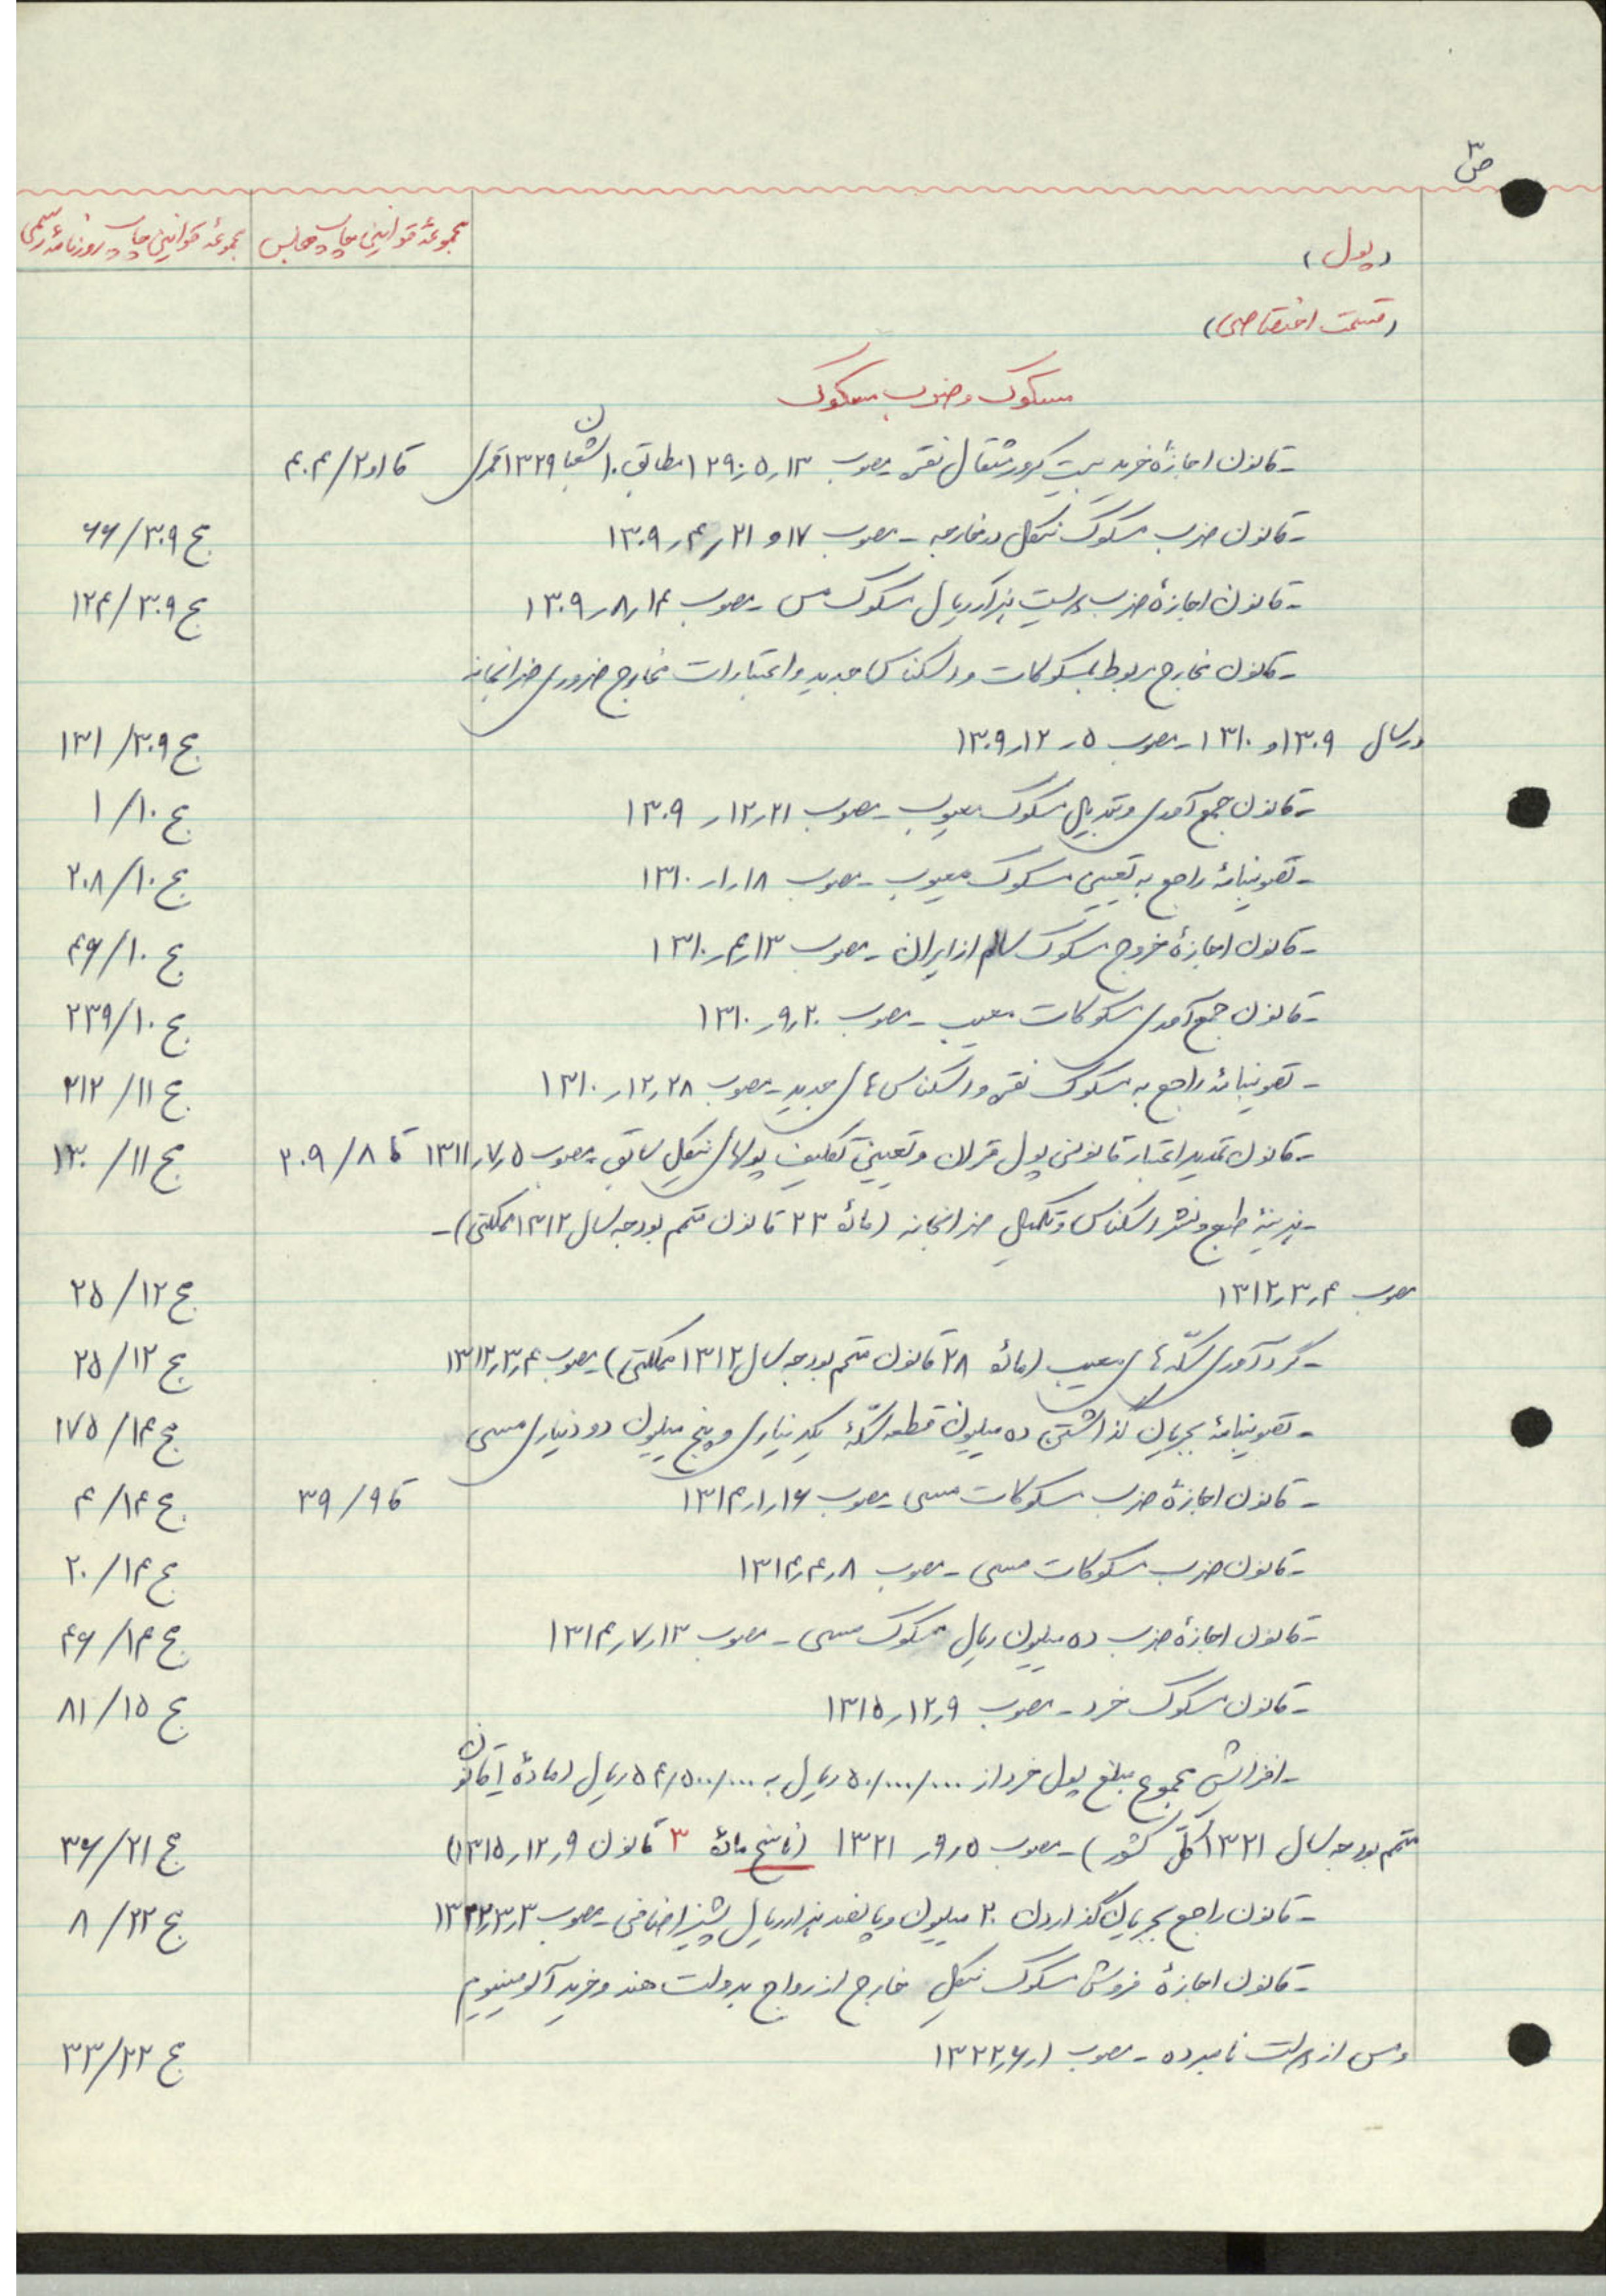 ص ۳
(پول) مجموعهٔ قوانین چاپ مجلس مجموعهٔ قوانین چاپ روزنامهٔ رسمی
(قسمت اختصاصی)
مسکوک و ضرب مسکوک
- قانون اجازهٔ خرید بیست کرور مثقال نقره - مصوب ۱۳ر۵ر۱۲۹۰ مطابق ۱۰ شعبان ۱۳۲۹ قمری قا ۱و۲/۴۰۴
- قانون ضرب مسکوک نیکل در خارجه - مصوب ۱۷ و ۲۱ر۴ر۱۳۰۹ ج ۳۰۹/۶۶
- قانون اجازهٔ ضرب دویست هزار ریال مسکوک مس - مصوب ۱۴ر۸ر۱۳۰۹ ج ۳۰۹/۱۲۴
- قانون مخارج مربوط بمسکوکات و اسکناس جدید و اعتبارات مخارج ضروری ضرابخانه
در سال ۱۳۰۹ و ۱۳۱۰ - مصوب ۵ر۱۲ر۱۳۰۹ ج ۳۰۹/۱۳۱
- قانون جمع آوری و تبدیل مسکوک معیوب - مصوب ۲۱ر۱۲ر۱۳۰۹ ج ۱۰/۱
- تصویبنامهٔ راجع به تعیین مسکوک معیوب - مصوب ۱۸ر۱ر۱۳۱۰ ج ۱۰/۲۰۸
- قانون اجازهٔ خروج مسکوک سالم از ایران - مصوب ۱۳ر۴ر۱۳۱۰ ج ۱۰/۴۶
- قانون جمع آوری مسکوکات معیب - مصوب ۲۰ر۹ر۱۳۱۰ ج ۱۰/۲۳۹
- تصویبنامهٔ راجع به مسکوک نقره و اسکناس های جدید - مصوب ۲۸ر۱۲ر۱۳۱۰ ج ۱۱/۲۱۲
- قانون تمدید اعتبار قانونی پول قران و تعیین تکلیف پولهای نیکل سابق - مصوب ۵ر۷ر۱۳۱۱ قا ۸/۲۰۹ ج ۱۱/۱۳۰
- هزینهٔ طبع و نشر اسکناس و تکمیل ضرابخانه (مادهٔ ۲۳ قانون متمم بودجه سال ۱۳۱۲ مملکتی) -
مصوب ۴ر۳ر۱۳۱۲ ج ۱۲/۲۵
- گردآوری سکّه های معیب (مادهٔ ۲۸ قانون متمم بودجه سال ۱۳۱۲ مملکتی) - مصوب ۴ر۳ر۱۳۱۲ ج ۱۲/۲۵
- تصویبنامهٔ بجریان گذاشتن ده میلیون قطعه سکّهٔ یکدیناری و پنج میلیون دو دیناری مسی ج ۱۴/۱۷۵
- قانون اجازهٔ ضرب مسکوکات مسی - مصوب ۱۶ر۱ر۱۳۱۴ قا ۹/۳۹ ج ۱۴/۴
- قانون ضرب مسکوکات مسی - مصوب ۸ر۴ر۱۳۱۴ ج ۱۴/۲۰
- قانون اجازهٔ ضرب ده میلیون ریال مسکوک مسی - مصوب ۱۳ر۷ر۱۳۱۴ ج ۱۴/۴۶
- قانون مسکوک خرد - مصوب ۹ر۱۲ر۱۳۱۵ ج ۱۵/۸۱
- افزایش مجموع مبلغ پول خرد از ۵۰/۰۰۰/۰۰۰ ریال به ۵۴/۵۰۰/۰۰۰ ریال (مادهٔ قانون
متمم بودجه سال ۱۳۲۱ کلّ کشور) - مصوب ۵ر۹ر۱۳۲۱ (ناسخ مادهٔ ۳ قانون ۹ر۱۲ر۱۳۱۵) ج ۲۱/۳۶
- قانون راجع بجریان گذاردن ۲۰ میلیون و پانصد هزار ریال پشیز اضافی - مصوب ۳ر۳ر۱۳۲۲ ج ۲۲/۸
- قانون اجازهٔ فروش مسکوک نیکل خارج از رواج بدولت هند و خرید آلومینیوم
و مس از دولت نامبرده - مصوب ۱ر۶ر۱۳۲۲ ج ۲۲/۳۳